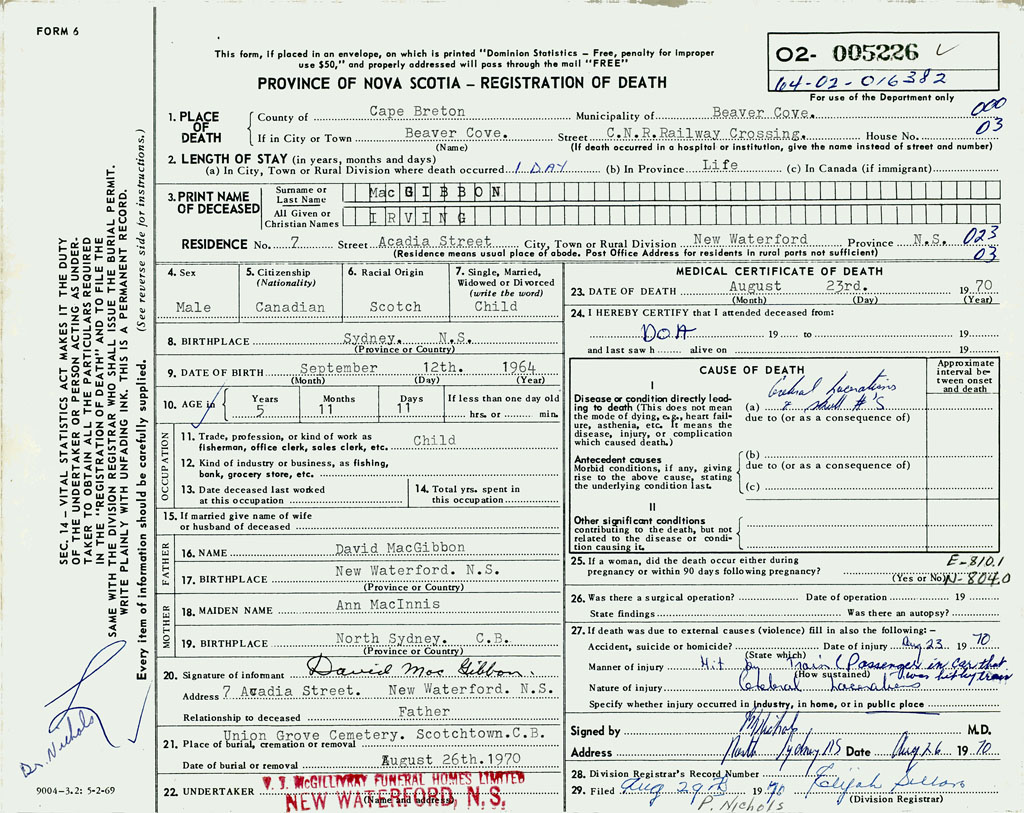 FORM 6
This form, if placed in an envelope, on which is printed "Dominion Statistics – Free, penalty for improper
use $50," and properly addressed will pass through the mail "FREE"
PROVINCE OF NOVA SCOTIA – REGISTRATION OF DEATH
02- 005226
64-02-016382
For use of the Department only
1. PLACE OF DEATH
County of Cape Breton Municipality of Beaver Cove. 000
If in City or Town Beaver Cove. Street C.N.R.Railway Crossing. House No. 03
(Name) (If death occurred in a hospital or institution, give the name instead of street and number)
2. LENGTH OF STAY (in years, months and days)
(a) In City, Town or Rural Division where death occurred 1 DAY (b) In Province Life (c) In Canada (if immigrant)
3. PRINT NAME OF DECEASED
Surname or Last Name MacGIBBON
All Given or Christian Names IRVING
RESIDENCE No. 7 Street Acadia Street City, Town or Rural Division New Waterford Province N.S. 023
(Residence means usual place of abode. Post Office Address for residents in rural ports not sufficient) 03
4. Sex
Male
5. Citizenship
(Nationality)
Canadian
6. Racial Origin
Scotch
7. Single, Married,
Widowed or Divorced
(write the word)
Child
8. BIRTHPLACE Sydney. N.S.
(Province or Country)
9. DATE OF BIRTH September 12th. 1964
(Month) (Day) (Year)
10. AGE in
Years Months Days If less than one day old
5 11 11 hrs. or min.
OCCUPATION
11. Trade, profession, or kind of work as
fishermon, office clerk, sales clerk, etc. Child
12. Kind of industry or business, as fishing,
bank, grocery store, etc.
13. Date deceased last worked
at this occupation
14. Total yrs. spent in
this occupation
15. If married give name of wife
or husband of deceased
FATHER
16. NAME David MacGibbon
17. BIRTHPLACE New Waterford. N.S.
(Province or Country)
MOTHER
18. MAIDEN NAME Ann MacInnis
19. BIRTHPLACE North Sydney. C.B.
(Province or Country)
20. Signature of informant David MacGibbon.
Address 7 Acadia Street. New Waterford. N.S.
Relationship to deceased Father
Union Grove Cemetery. Scotchtown.C.B.
21. Place of burial, cremation or removal
Date of burial or removal August 26th.1970
22. UNDERTAKER V. J. McGILLIVRAY FUNERAL HOMES LIMITED
NEW WATERFORD, N.S.
(Name and address)
MEDICAL CERTIFICATE OF DEATH
23. DATE OF DEATH August 23rd. 1970
(Month) (Day) (Year)
24. I HEREBY CERTIFY that I attended deceased from:
DOA 19 to 19
and last saw h alive on 19
CAUSE OF DEATH
Approximate
interval be-
tween onset
and death
I
Disease or condition directly lead-
ing to death (This does not mean
the mode of dying, e.g., heart fail-
ure, asthenia, etc. It means the
disease, injury, or complication
which caused death.)
(a) Cerebral Lacerations
& skull #'s
due to (or as a consequence of)
Antecedent causes
Morbid conditions, if any, giving
rise to the above cause, stating
the underlying condition last.
(b)
due to (or as a consequence of)
(c)
II
Other significant conditions
contributing to the death, but not
related to the disease or condi-
tion causing it.
25. If a woman, did the death occur either during
pregnancy or within 90 days following pregnancy? (Yes or No)
E-810.1
N-804.0
26. Was there a surgical operation? Date of operation 19
State findings Was there an autopsy?
27. If death was due to external causes (violence) fill in also the following: –
Accident, suicide or homicide? Date of injury Aug 23 1970
(State which)
Manner of injury Hit by Train (Passenger in car that
(How sustained) was hit by train
Nature of injury Cerebral Lacerations
Specify whether injury occurred in industry, in home, or in public place
Signed by Nichols M.D.
Address North Sydney NS Date Aug 26 1970
28. Division Registrar's Record Number
29. Filed Aug 29th 1970 Elijah
(Division Registrar)
P. Nichols
SEC. 14 – VITAL STATISTICS ACT MAKES IT THE DUTY
OF THE UNDERTAKER OR PERSON ACTING AS UNDER-
TAKER TO OBTAIN ALL THE PARTICULARS REQUIRED
IN THE "REGISTRATION OF DEATH" AND TO FILE THE
SAME WITH THE DIVISION REGISTRAR WHO SHALL ISSUE THE BURIAL PERMIT.
WRITE PLAINLY WITH UNFADING INK. THIS IS A PERMANENT RECORD.
Every item of information should be carefully supplied. (See reverse side for instructions.)
Dr. Nichols
9004-3.2: 5-2-69